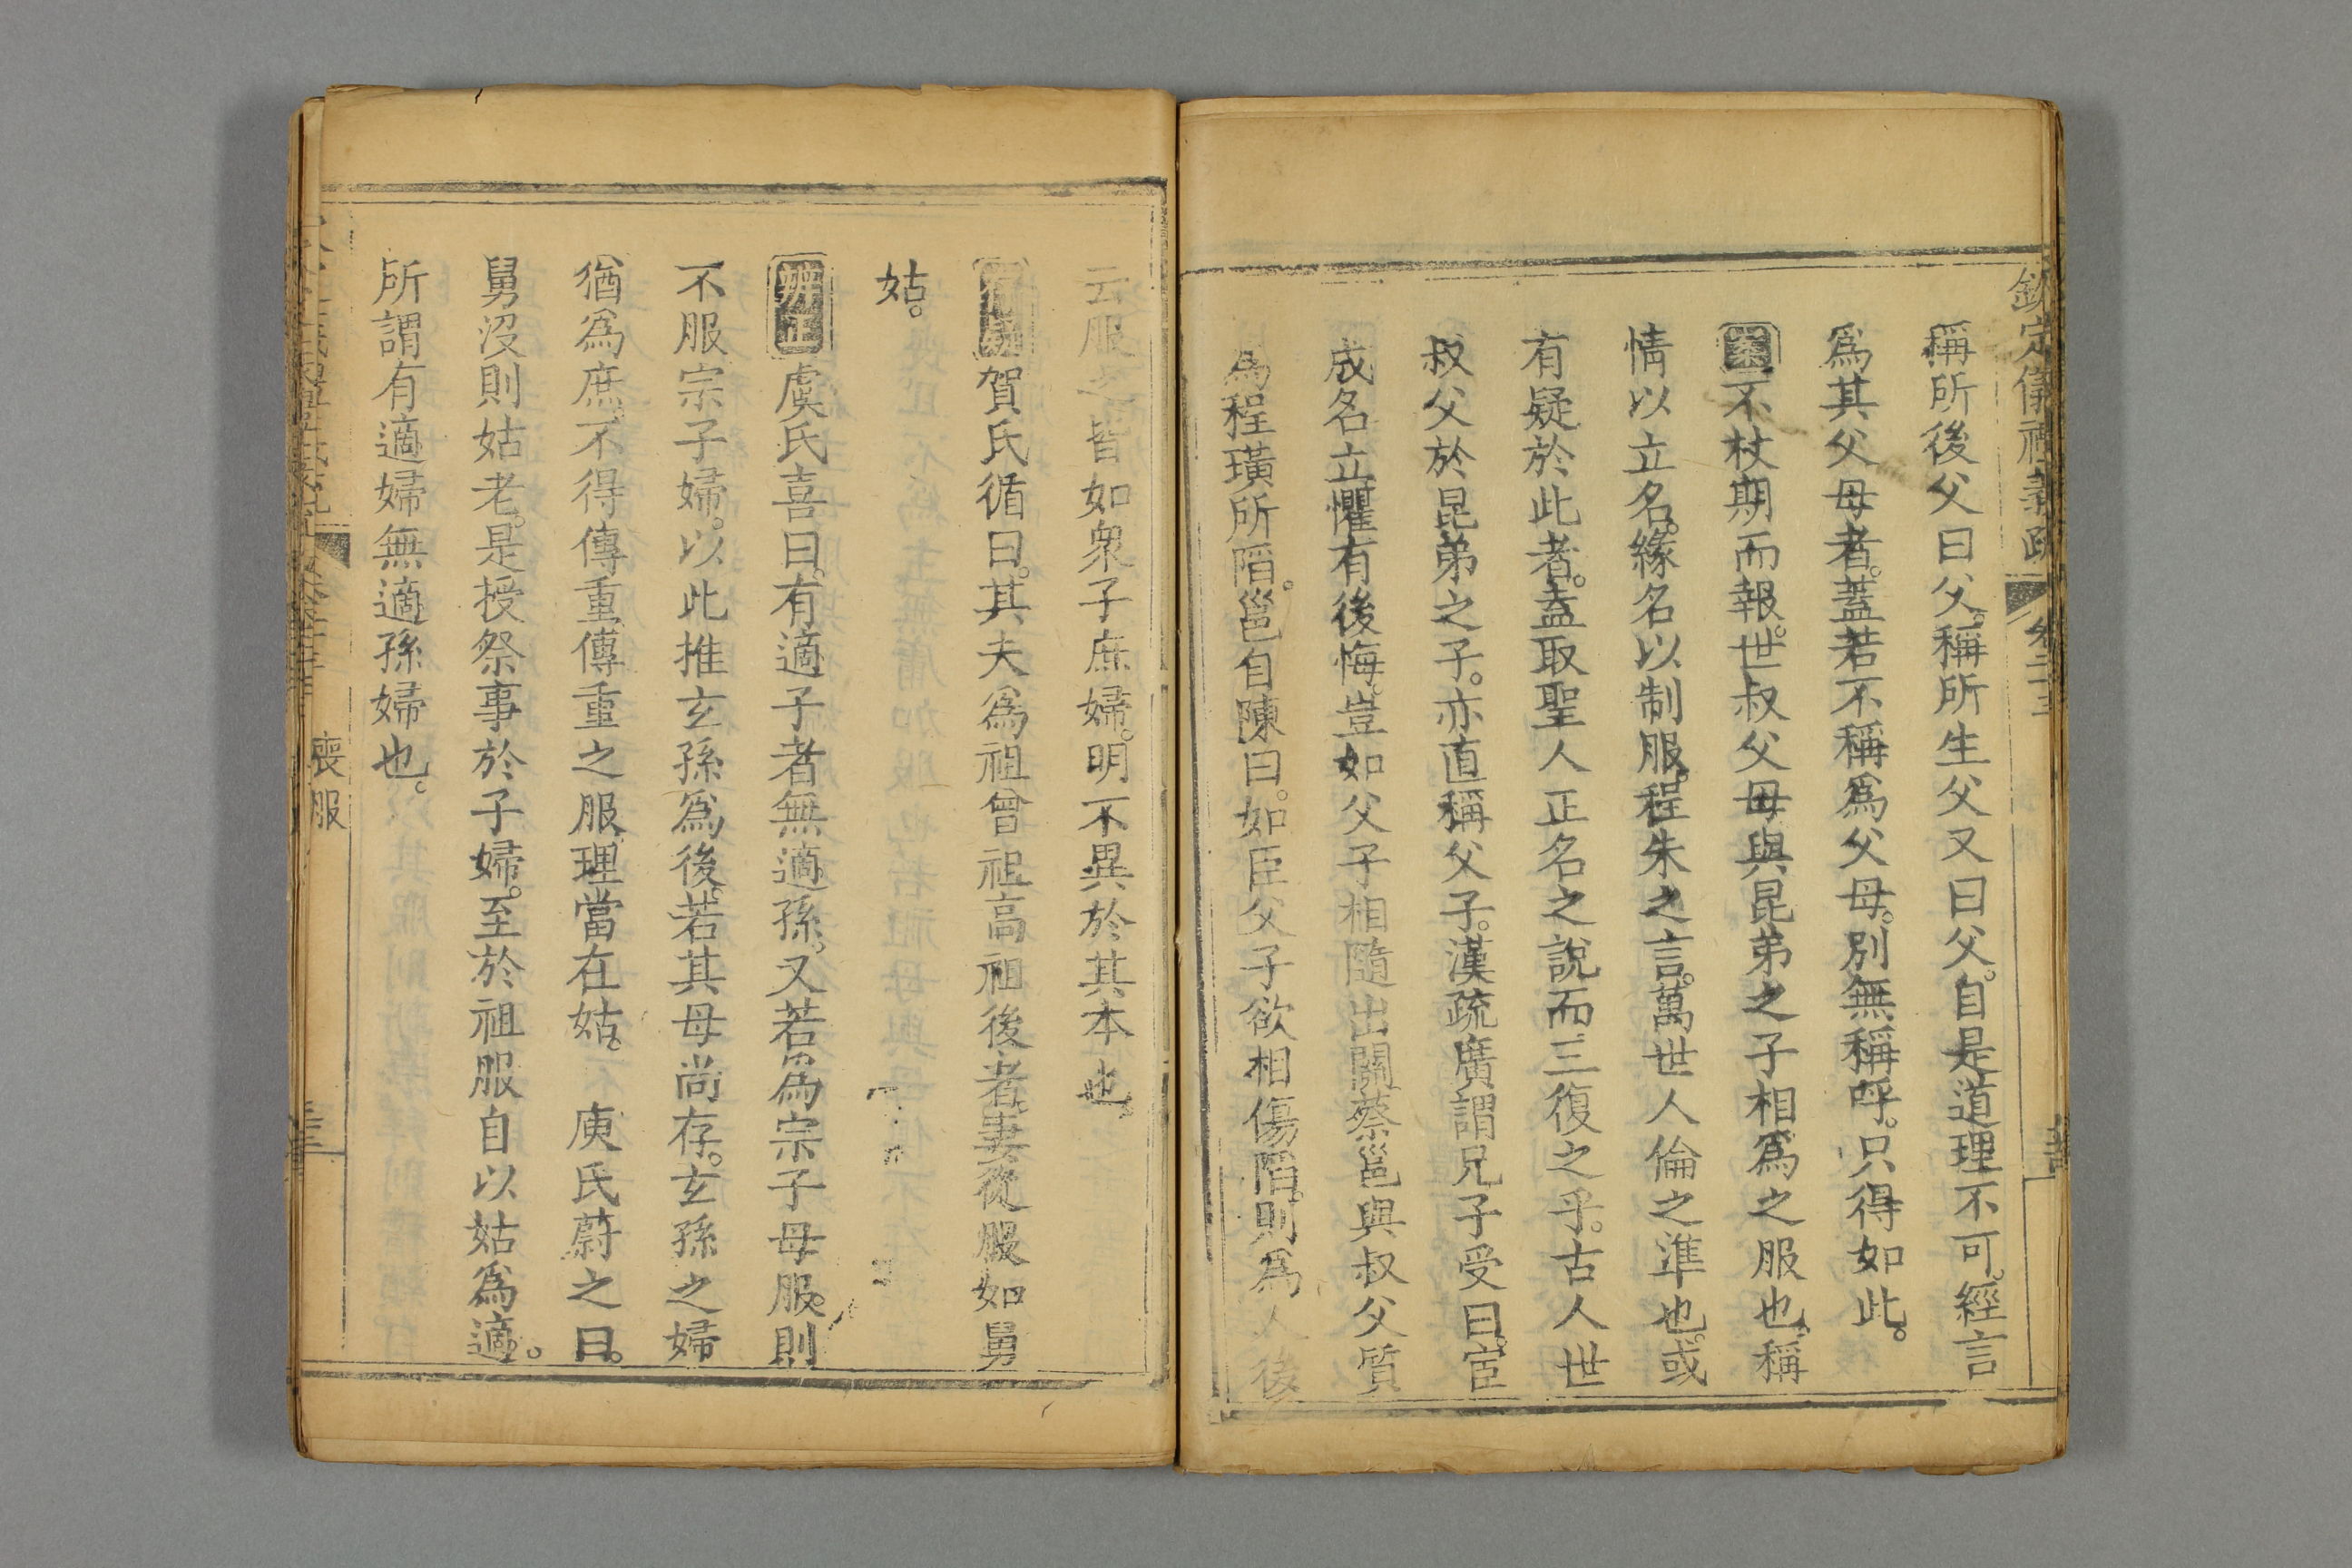 欽定儀禮義疏 卷二十三
稱所後父曰父。稱所生父又曰父。自是道理不可。經言
爲其父母者。蓋若不稱爲父母。別無稱呼。只得如此。
案不杖期而報。世叔父母與昆弟之子相爲之服也。稱
情以立名。緣名以制服。程朱之言。萬世人倫之準也。或
有疑於此者。盍取聖人正名之說而三復之乎。古人世
叔父於昆弟之子。亦直稱父子。漢疏廣謂兄子受曰。宦
成名立。懼有後悔。豈如父子相隨出關。蔡邕與叔父質
爲程璜所陷。邕自陳曰。如臣父子欲相傷陷。則爲人後
云服之皆如衆子庶婦。明不異於其本也。
存疑賀氏循曰。其夫爲祖曾祖高祖後者。妻從服如舅
姑。
辨正虞氏喜曰。有適子者無適孫。又若爲宗子母服。則
不服宗子婦。以此推玄孫爲後。若其母尚存。玄孫之婦
猶爲庶。不得傳重。傳重之服。理當在姑。 庾氏蔚之曰。
舅沒則姑老。是授祭事於子婦。至於祖服自以姑爲適。
所謂有適婦無適孫婦也。
喪服